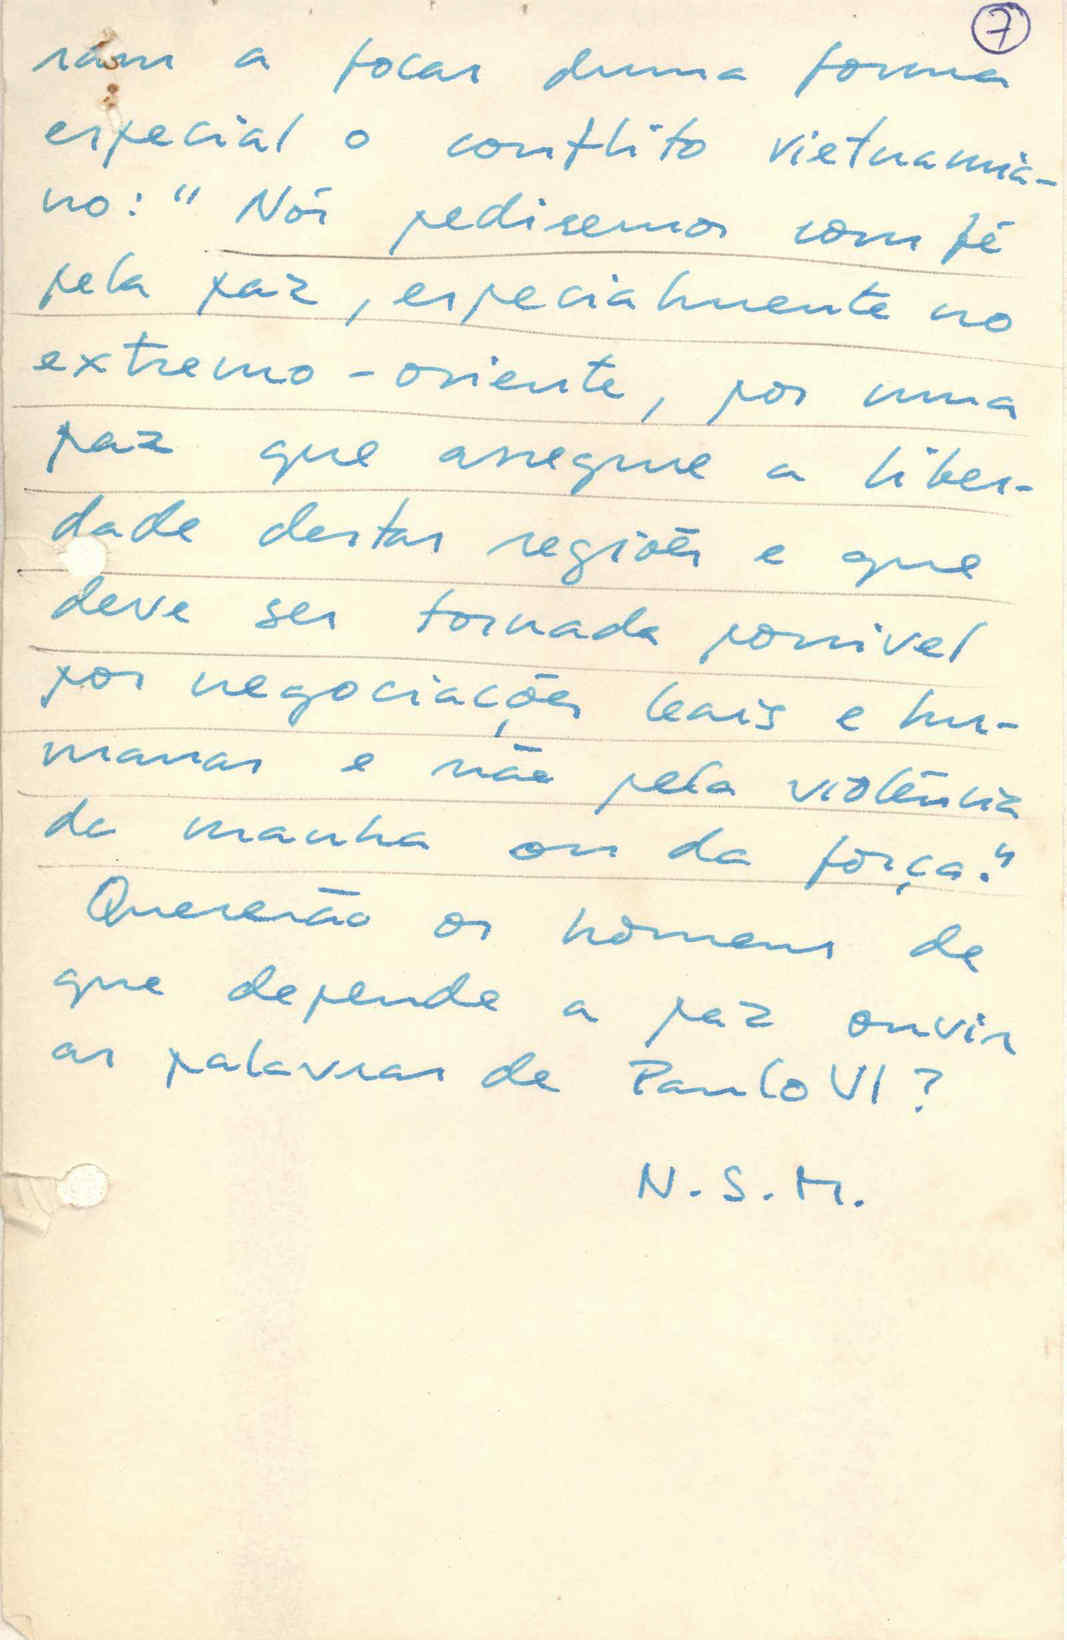 7
ram a focar duma forma
especial o conflito vietnamia-
no: "Nós pediremos com fé
pela paz, especialmente no
extremo-oriente, por uma
paz que assegure a liber-
dade destas regiões e que
deve ser tornada possivel
por negociações leais e hu-
manas e não pela violência
da manha ou da força."
Quererão os homens de
que depende a paz ouvir
as palavras de Paulo VI?
N.S.M.